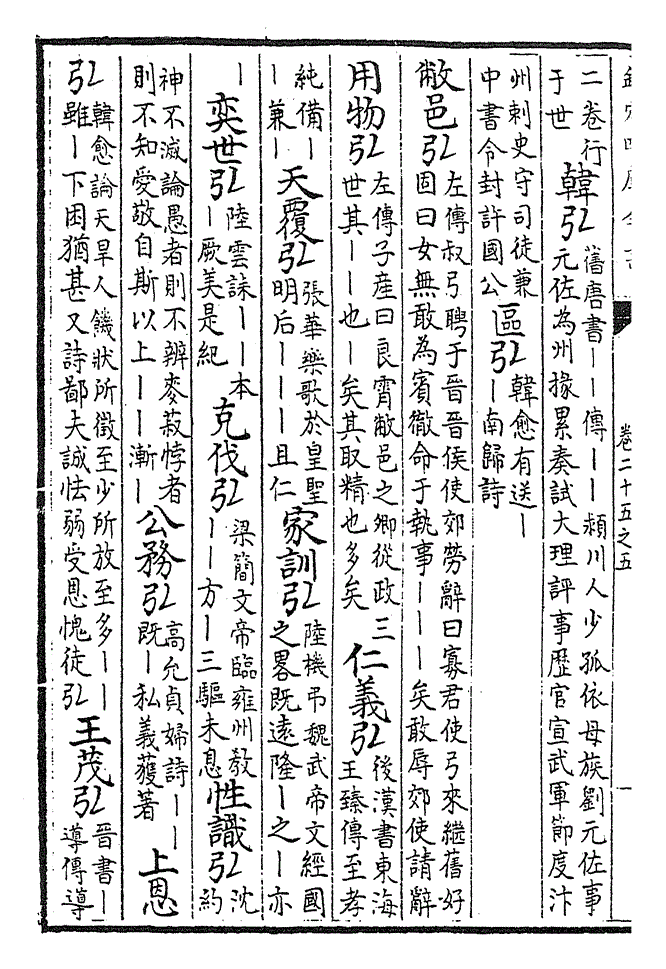 欽定四庫全書
卷二十五之五
一
二卷行于世 韓弘 舊唐書｜｜傳｜｜頴川人少孤依母族劉元佐事元佐為州掾累奏試大理評事歷官宣武軍節度汴
州刺史守司徒兼中書令封許國公 區弘 韓愈有送｜｜南歸詩
敝邑弘 左傳叔弓聘于晉晉侯使郊勞辭曰寡君使弓來繼舊好固曰女無敢為賓徹命于執事｜｜｜矣敢辱郊使請辭
用物弘 左傳子産曰良霄敝邑之卿從政三世其｜｜也｜矣其取精也多矣 仁義弘 後漢書東海王臻傳至孝
純備｜｜兼｜ 天覆弘 張華樂歌於皇聖明后｜｜｜且仁 家訓弘 陸機弔魏武帝文經國之畧既遠隆｜之｜亦
｜ 奕世弘 陸雲誄｜｜本｜厥美是紀 克伐弘 梁簡文帝臨雍州教｜｜方｜三驅未息 性識弘 沈約
神不滅論愚者則不辨麥菽悖者則不知愛敬自斯以上｜｜漸｜ 公務弘 高允貞婦詩｜｜既｜私義獲著 上恩
弘 韓愈論天旱人饑狀所徵至少所放至多｜｜雖｜下困猶甚又詩鄙夫誠怯弱受恩愧徒弘 王茂弘 晉書｜導傳導